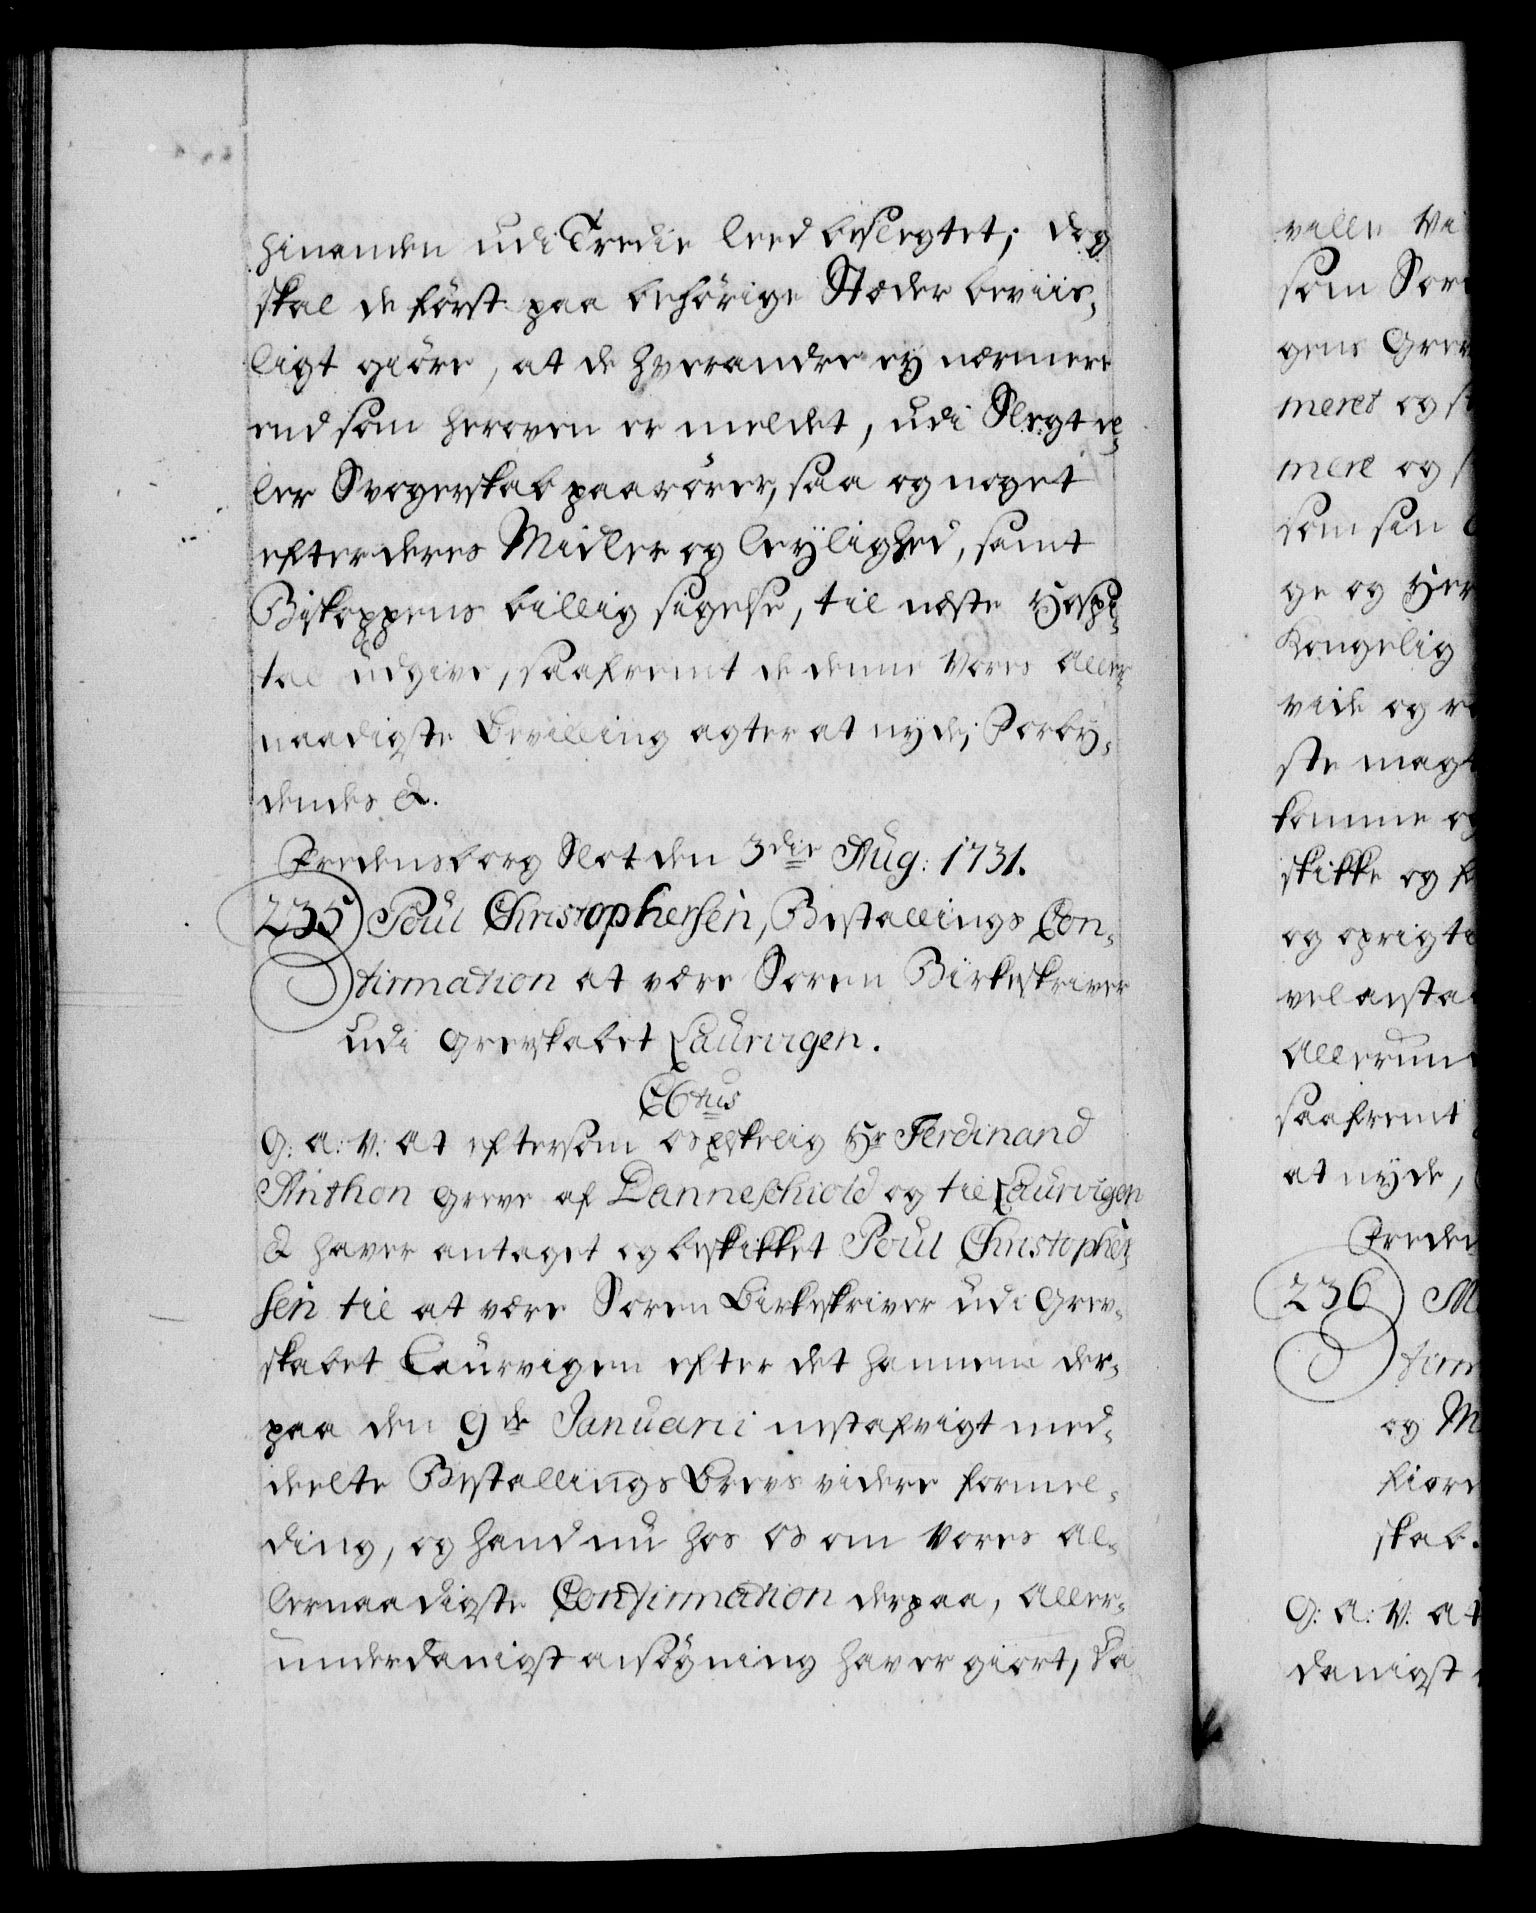 hinanden udi Tredie leed beslegtet; dog
skal de först paa behörige Stæder beviis-
ligt giöre, at de hverandre ey nærmere
end som heroven er meldet, udi Slegt el-
ler Svogerskab paarörer, saa og noget
efter deres Midler og leylighed, samt
Biskoppens billig sigelse, til næste Hospi-
tal udgive, saafremt de denne Vores Aller-
naadigste Bevilling agter at nyde; Forby-
dendes &.
Fredensborg Slot den 3die Aug: 1731.
235 Poul Christophersen, Bestallings Con-
firmation at være Soren Birkeskriver
udi Grevskabet Laurvigen.
C6tus
G: A: V: At eftersom os Elskelig Hr Ferdinand
Anthon Greve af Danneschiold og til Laurvigen
& haver antaget og beskikket Poul Christopher-
sen til at være Soren Birkeskriver udi Grev-
skabet Laurvigen efter det hannem der-
paa den 9de Januarii nestafvigt med-
deelte Bestallings Brevs videre formel-
ding, og hand nu hos os om Vores Al-
lernaadigste Confirmation derpaa, aller-
underdanigst ansögning haver giort, Da
ville Vi
som Sore
gens Grev
meret og st
mere og s
som san
ge og Her
Kongelig
vide og ra
ste magt
komme og
skikke og f
og oprigti
vel anstaa
Allerund
saafremt
at nyde,
Freden
236 M
firm
og M
fiore
skab.
G: A: V: At
danigst